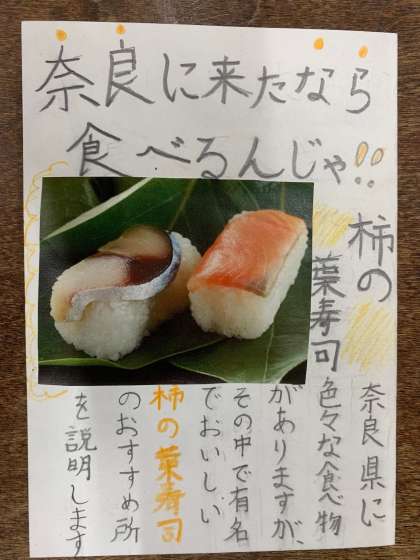 奈良に来たなら
食べるんじゃ!!
柿の
葉寿司
奈良県に
色々な食べ物
がありますが、
その中で有名
でおいしい
柿の葉寿司
のおすすめ所
を説明します